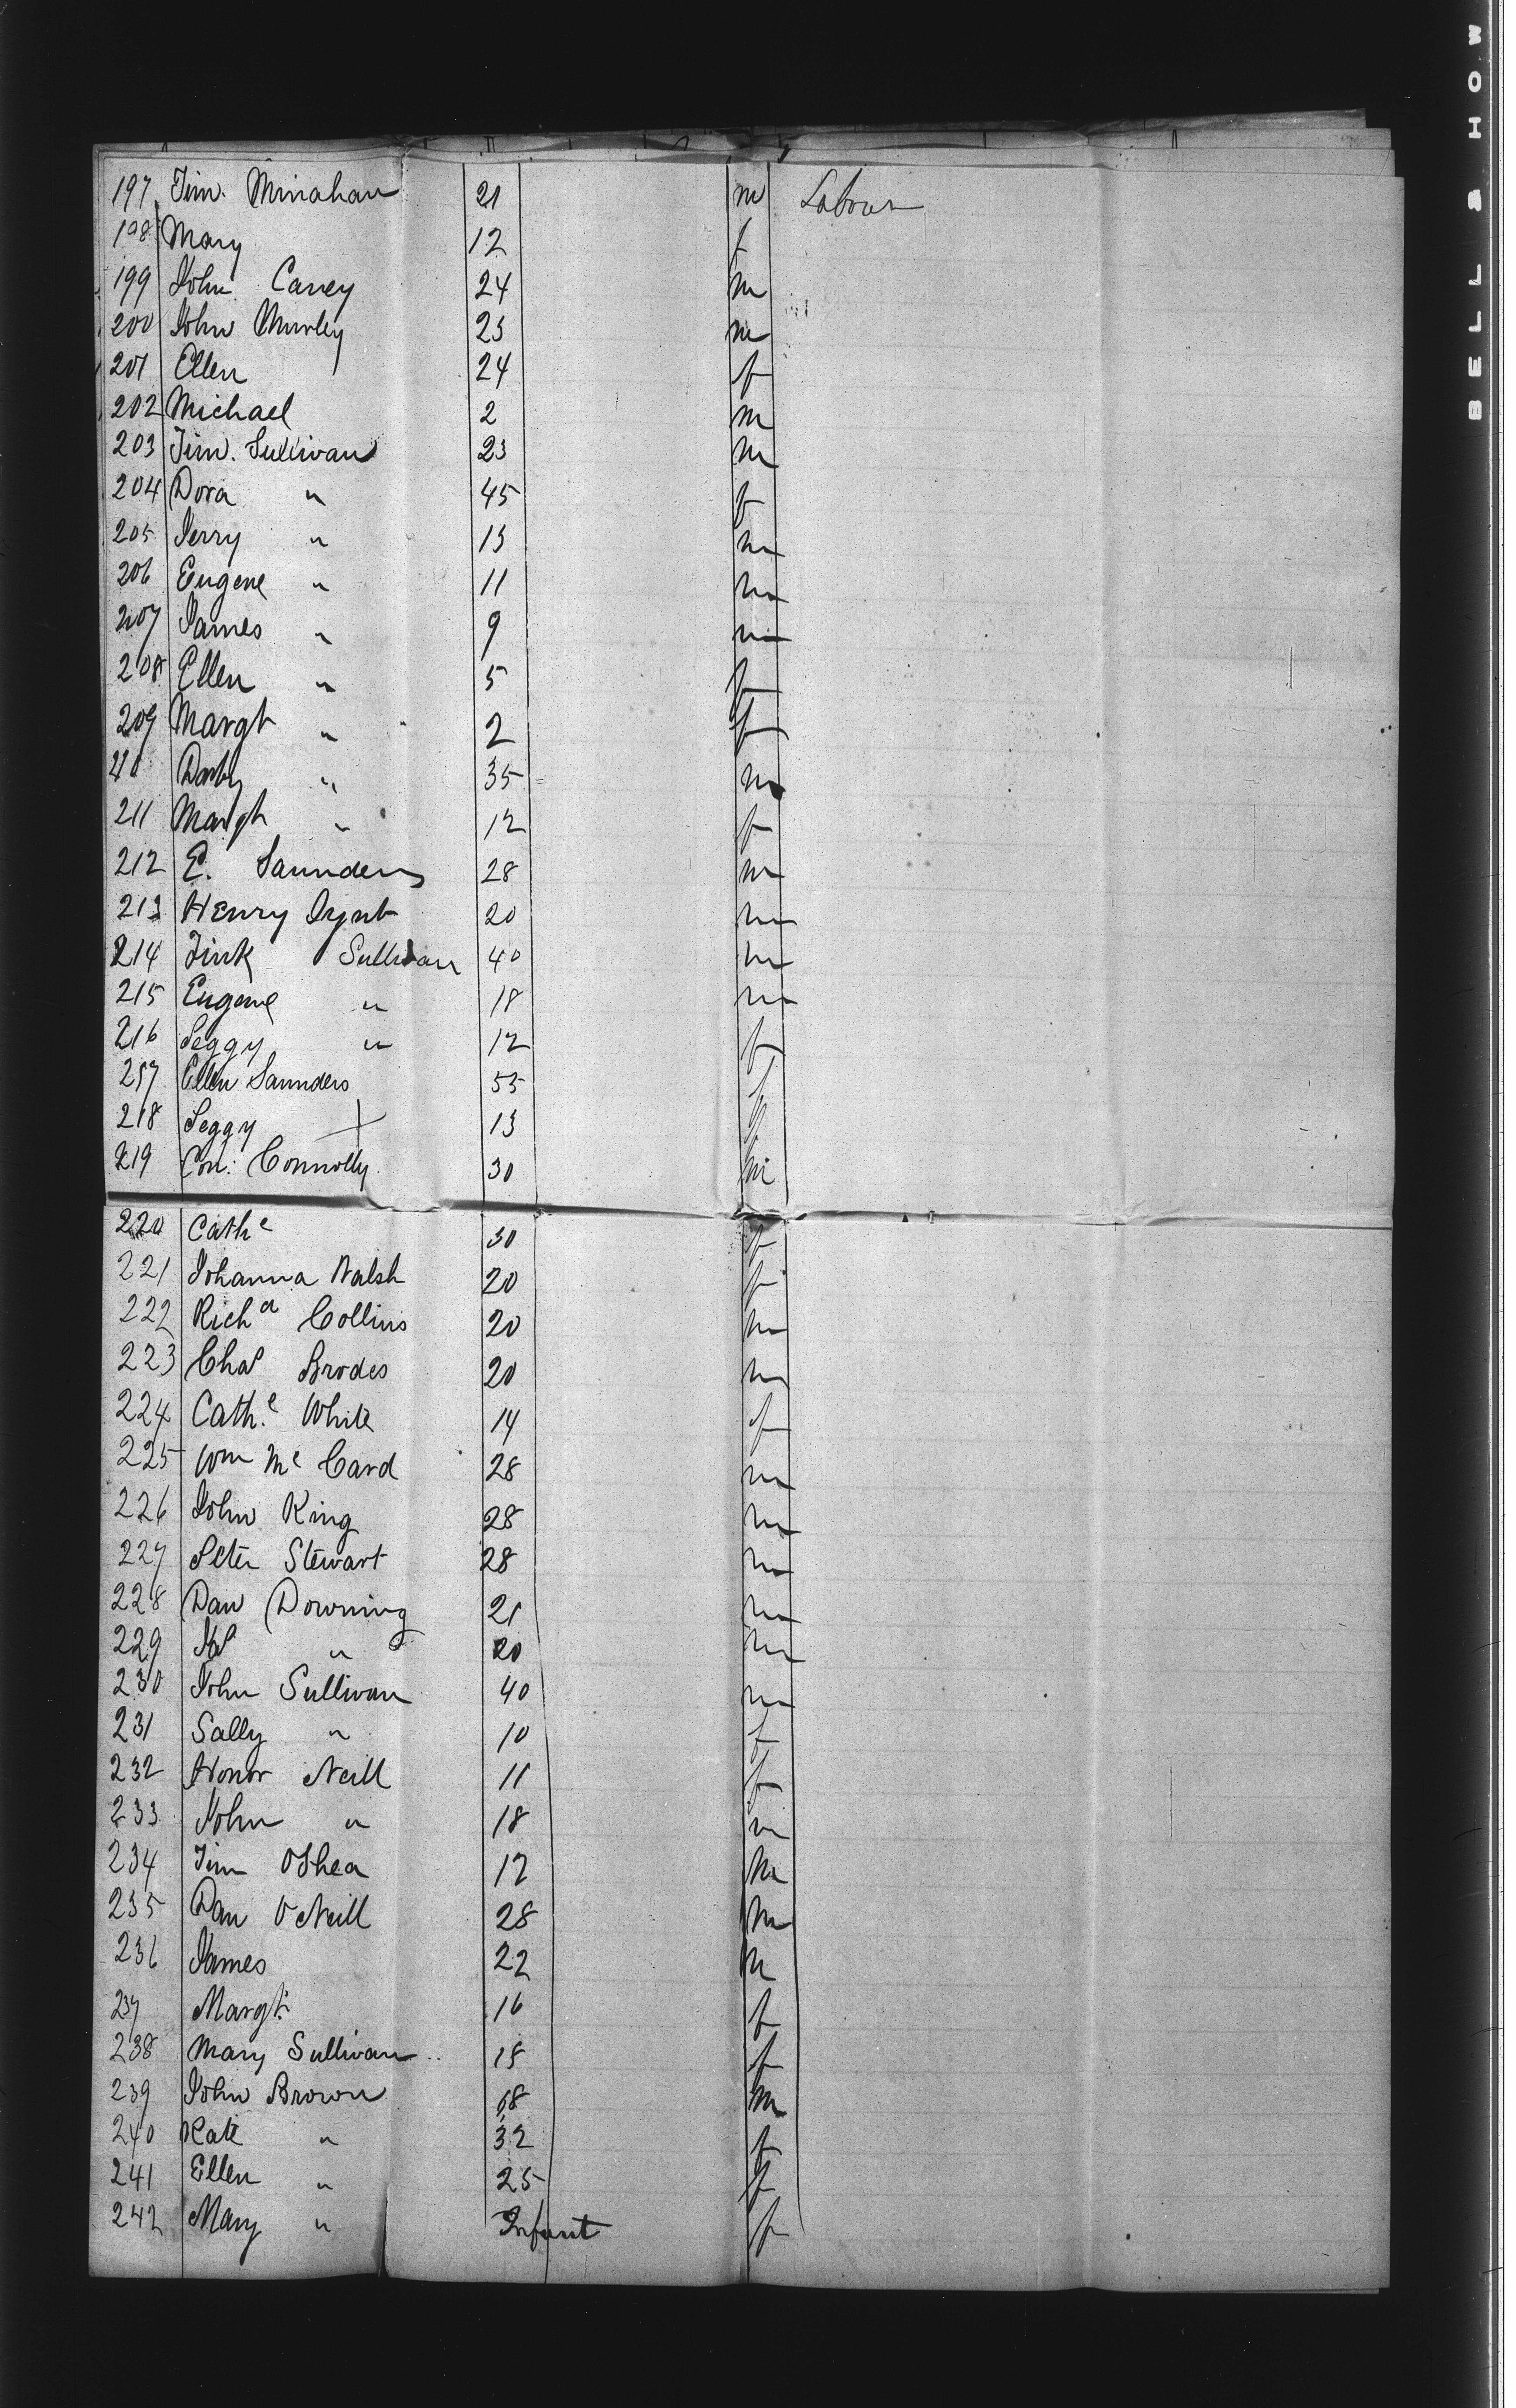 197 Tim. Minahan 21 m Labour
198 Mary 12 f
199 John Carey 24 m
200 John Murley 23 m
201 Ellen 24 f
202 Michael 2 m
203 Tim. Sullivan 23 m
204 Dora " 45 f
205 Jerry " 13 m
206 Eugene " 11 m
207 James " 9 m
208 Ellen " 5 f
209 Margt " 2 f
210 Darby " 35 m
211 Margt " 12 f
212 E. Saunders 28 m
213 Henry 20 m
214 Sullivan 40 m
215 Eugene " 18 m
216 Peggy " 12 f
217 Ellen Saunders 55 f
218 Peggy 13 f
219 Con: Connolly 30 m
220 Cathe 30 f
221 Johanna Walsh 20 f
222 Richd Collins 20 m
223 Chas Brodes 20 m
224 Cath.e White 14 f
225 Wm Mc Card 28 m
226 John King 28 m
227 Peter Stewart 28 m
228 Dan Downing 21 m
229 " 20 m
230 John Sullivan 40 m
231 Sally " 10 f
232 Honor Neill 11 f
233 John " 18 m
234 Tim OShea 12 m
235 Dan O Neill 28 m
236 James 22 m
237 Margt. 16 f
238 Mary Sullivan 18 f
239 John Brown 68 m
240 Kate " 32 f
241 Ellen " 25 f
242 Mary " Infant f
BELL & HOW